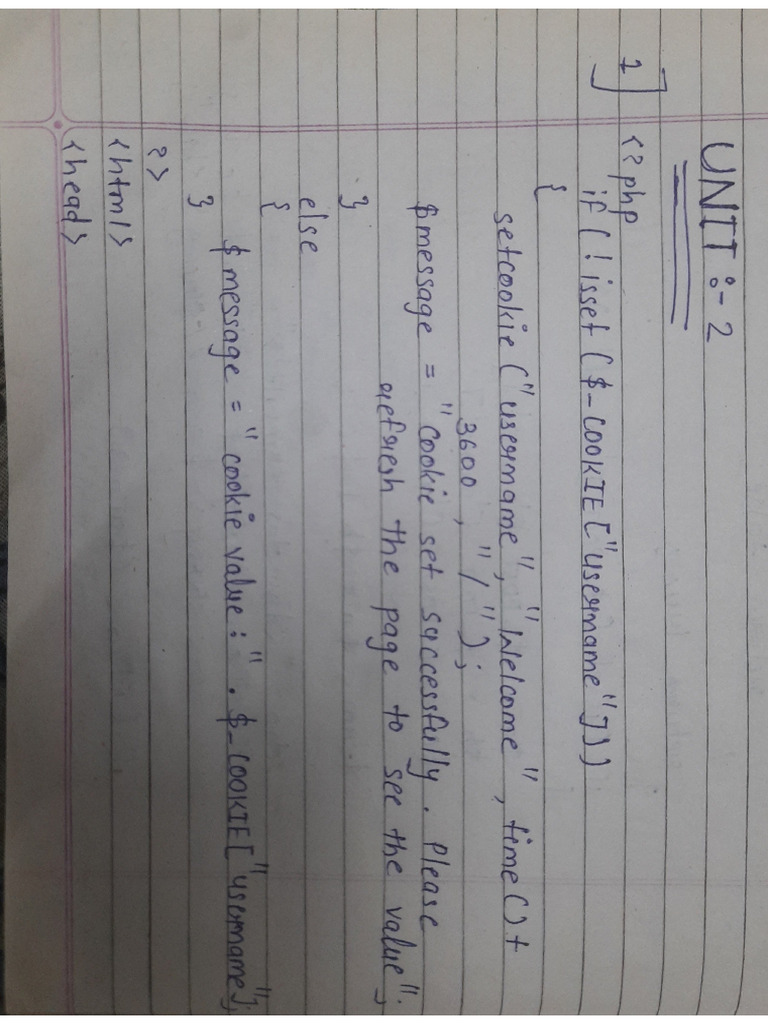 UNIT :- 2
1] <?php
if ( ! isset ( $_COOKIE ["username"] ) )
{
setcookie ("username", "Welcome", time() +
3600, "/");
$message = "cookie set successfully. Please
refresh the page to see the value";
}
else
{
$message = "cookie value:" . $_COOKIE["username"];
}
?>
<html>
<head>